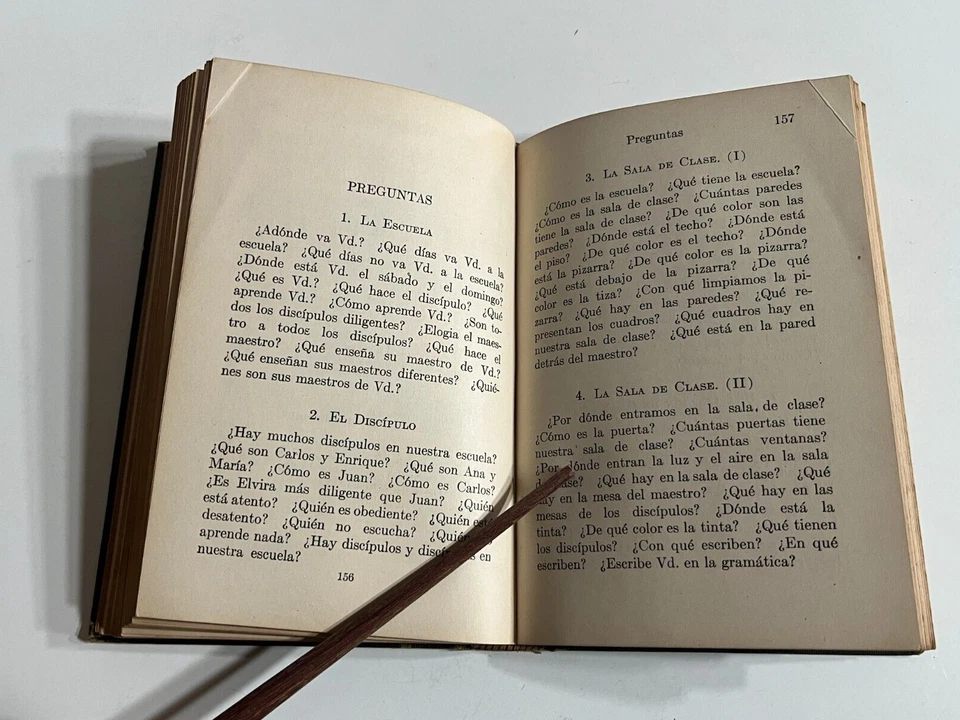 PREGUNTAS
1. La Escuela
¿Adónde va Vd.? ¿Qué días va Vd. a la
escuela? ¿Qué días no va Vd. a la escuela?
¿Dónde está Vd. el sábado y el domingo?
¿Qué es Vd.? ¿Qué hace el discípulo? ¿Qué
aprende Vd.? ¿Cómo aprende Vd.? ¿Son to-
dos los discípulos diligentes? ¿Elogia el maes-
tro a todos los discípulos? ¿Qué hace el
maestro? ¿Qué enseña su maestro de Vd.?
¿Qué enseñan sus maestros diferentes? ¿Quié-
nes son sus maestros de Vd.?
2. El Discípulo
¿Hay muchos discípulos en nuestra escuela?
¿Qué son Carlos y Enrique? ¿Qué son Ana y
María? ¿Cómo es Juan? ¿Cómo es Carlos?
¿Es Elvira más diligente que Juan? ¿Quién
está atento? ¿Quién es obediente? ¿Quién está
desatento? ¿Quién no escucha? ¿Quién
aprende nada? ¿Hay discípulos y en
nuestra escuela?
156
Preguntas 157
3. La Sala de Clase. (I)
¿Cómo es la escuela? ¿Qué tiene la escuela?
¿Cómo es la sala de clase? ¿Cuántas paredes
tiene la sala de clase? ¿De qué color son las
paredes? ¿Dónde está el techo? ¿Dónde está
el piso? ¿De qué color es el techo? ¿Dónde
está la pizarra? ¿De qué color es la pizarra?
¿Qué está debajo de la pizarra? ¿De qué
color es la tiza? ¿Con qué limpiamos la pi-
zarra? ¿Qué hay en las paredes? ¿Qué re-
presentan los cuadros? ¿Qué cuadros hay en
nuestra sala de clase? ¿Qué está en la pared
detrás del maestro?
4. La Sala de Clase. (II)
¿Por dónde entramos en la sala de clase?
¿Cómo es la puerta? ¿Cuántas puertas tiene
nuestra sala de clase? ¿Cuántas ventanas?
¿Por dónde entran la luz y el aire en la sala
de clase? ¿Qué hay en la sala de clase? ¿Qué
hay en la mesa del maestro? ¿Qué hay en las
mesas de los discípulos? ¿Dónde está la
tinta? ¿De qué color es la tinta? ¿Qué tienen
los discípulos? ¿Con qué escriben? ¿En qué
escriben? ¿Escribe Vd. en la gramática?